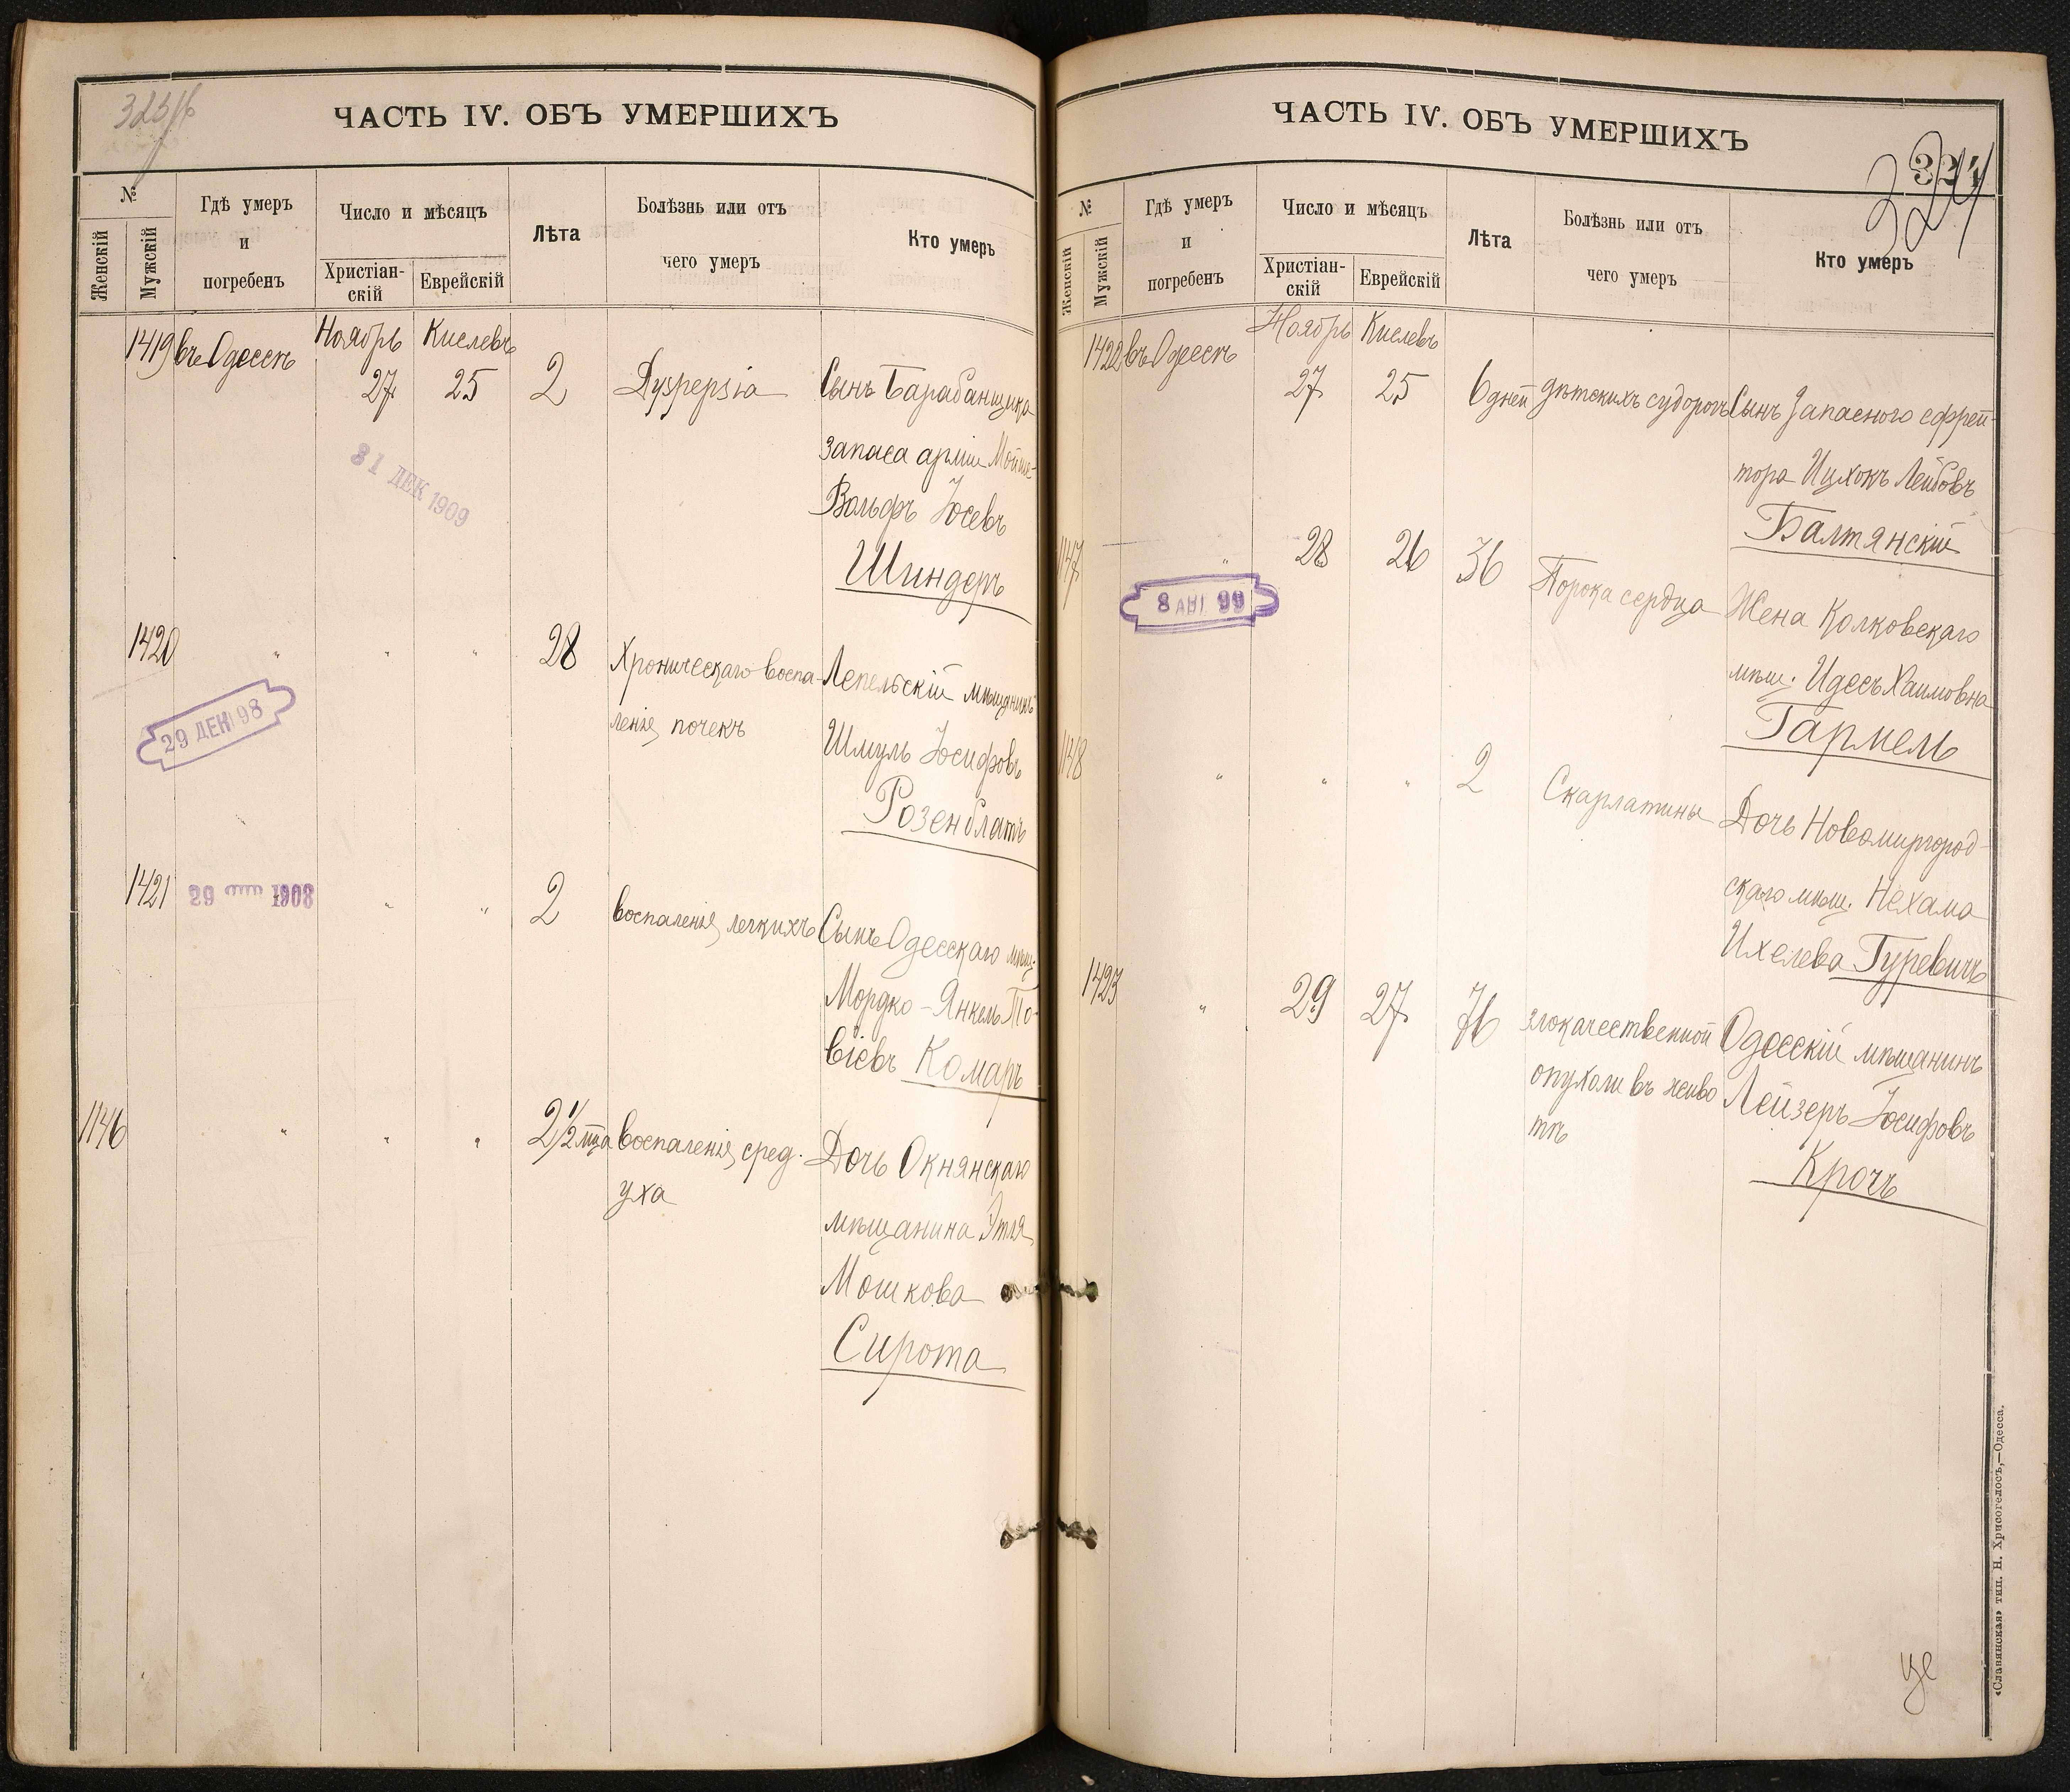 ЧАСТЬ IV. ОБЪ УМЕРШИХЪ
№
Женскій
Мужскій
Гдѣ умеръ
и
погребенъ
Число и мѣсяцъ
Христіан-
скій
Еврейскій
Лѣта
Болѣзнь или отъ
чего умеръ
Кто умеръ
1419 въ Одессѣ Ноябрь Кислевъ
27 25 2 Dyspepsia Сынъ Барабанщика
запаса арміи Мойше-
Вольфъ Іосевъ
Шиндеръ
31 ДЕК 1909
1420 " " " 28 Хроническаго воспа- Лепельскій мѣщанинъ
ленія почекъ Шмуль Іосифовъ
Розенблатъ
29 ДЕК 98
1421 " " 2 воспаленія легкихъ Сынъ Одесскаго мѣщ.
29 1903
Мордко-Янкель То-
віевъ Комаръ
1146 " " " 2 1/2 мца воспаленія сред. Дочь Окнянскаго
уха мѣщанина Этля
Мошкова
Сирота
ЧАСТЬ IV. ОБЪ УМЕРШИХЪ
324
324
№
Женскій
Мужскій
Гдѣ умеръ
и
погребенъ
Число и мѣсяцъ
Христіан-
скій
Еврейскій
Лѣта
Болѣзнь или отъ
чего умеръ
Кто умеръ
1422 въ Одессѣ Ноябрь Кислевъ
27 25 6 дней дѣтскихъ судорогъ Сынъ Запасного ефрей-
тора Ицхокъ Лейбовъ
Балтянскій
1147 " 28 26 36 Порока сердца Жена Колковскаго
мѣщ. Идесъ Хаимовна
Гармель
8 АВГ 99
1148 " " " 2 Скарлатины Дочь Новомиргород-
скаго мѣщ. Нехама
Ихелева Гуревичъ
1423 " 29 27 76 злокачественной Одесскій мѣщанинъ
опухоли въ живо Лейзеръ Іосифовъ
тѣ Крочъ
«Славянская» тип. Н. Хрисогелосъ,—Одесса.